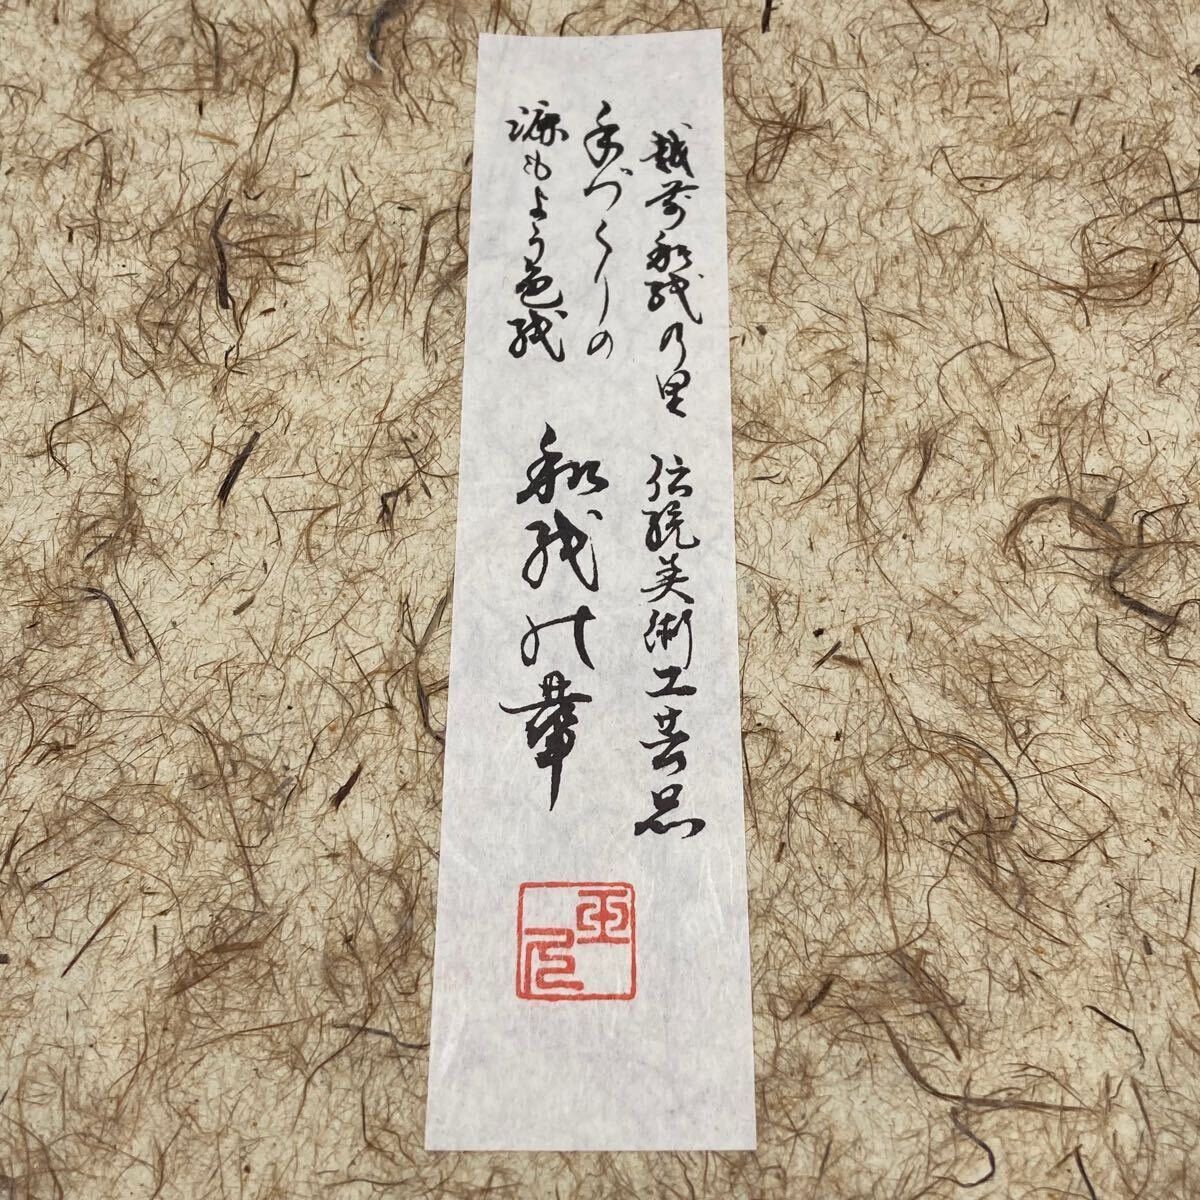 越前和紙乃里 伝統美術工芸品
手づくりの
漉もよう色紙
和紙の華